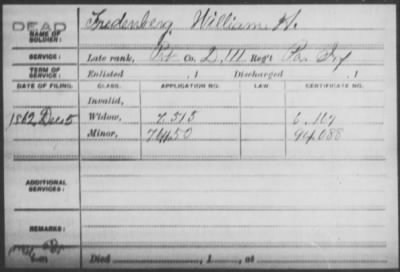 DEAD
NAME OF SOLDIER: Fredenberg William H.
SERVICE: Late rank, Pvt Co. D, 111 Reg't Pa. Inf
TERM OF SERVICE: Enlisted , 1 Discharged , 1
DATE OF FILING. CLASS. APPLICATION NO. LAW. CERTIFICATE NO.
Invalid,
1862 Dec 5 Widow, 7.515 6.107
Minor, 94.088
ADDITIONAL SERVICES:
REMARKS:
Died , 1 , at